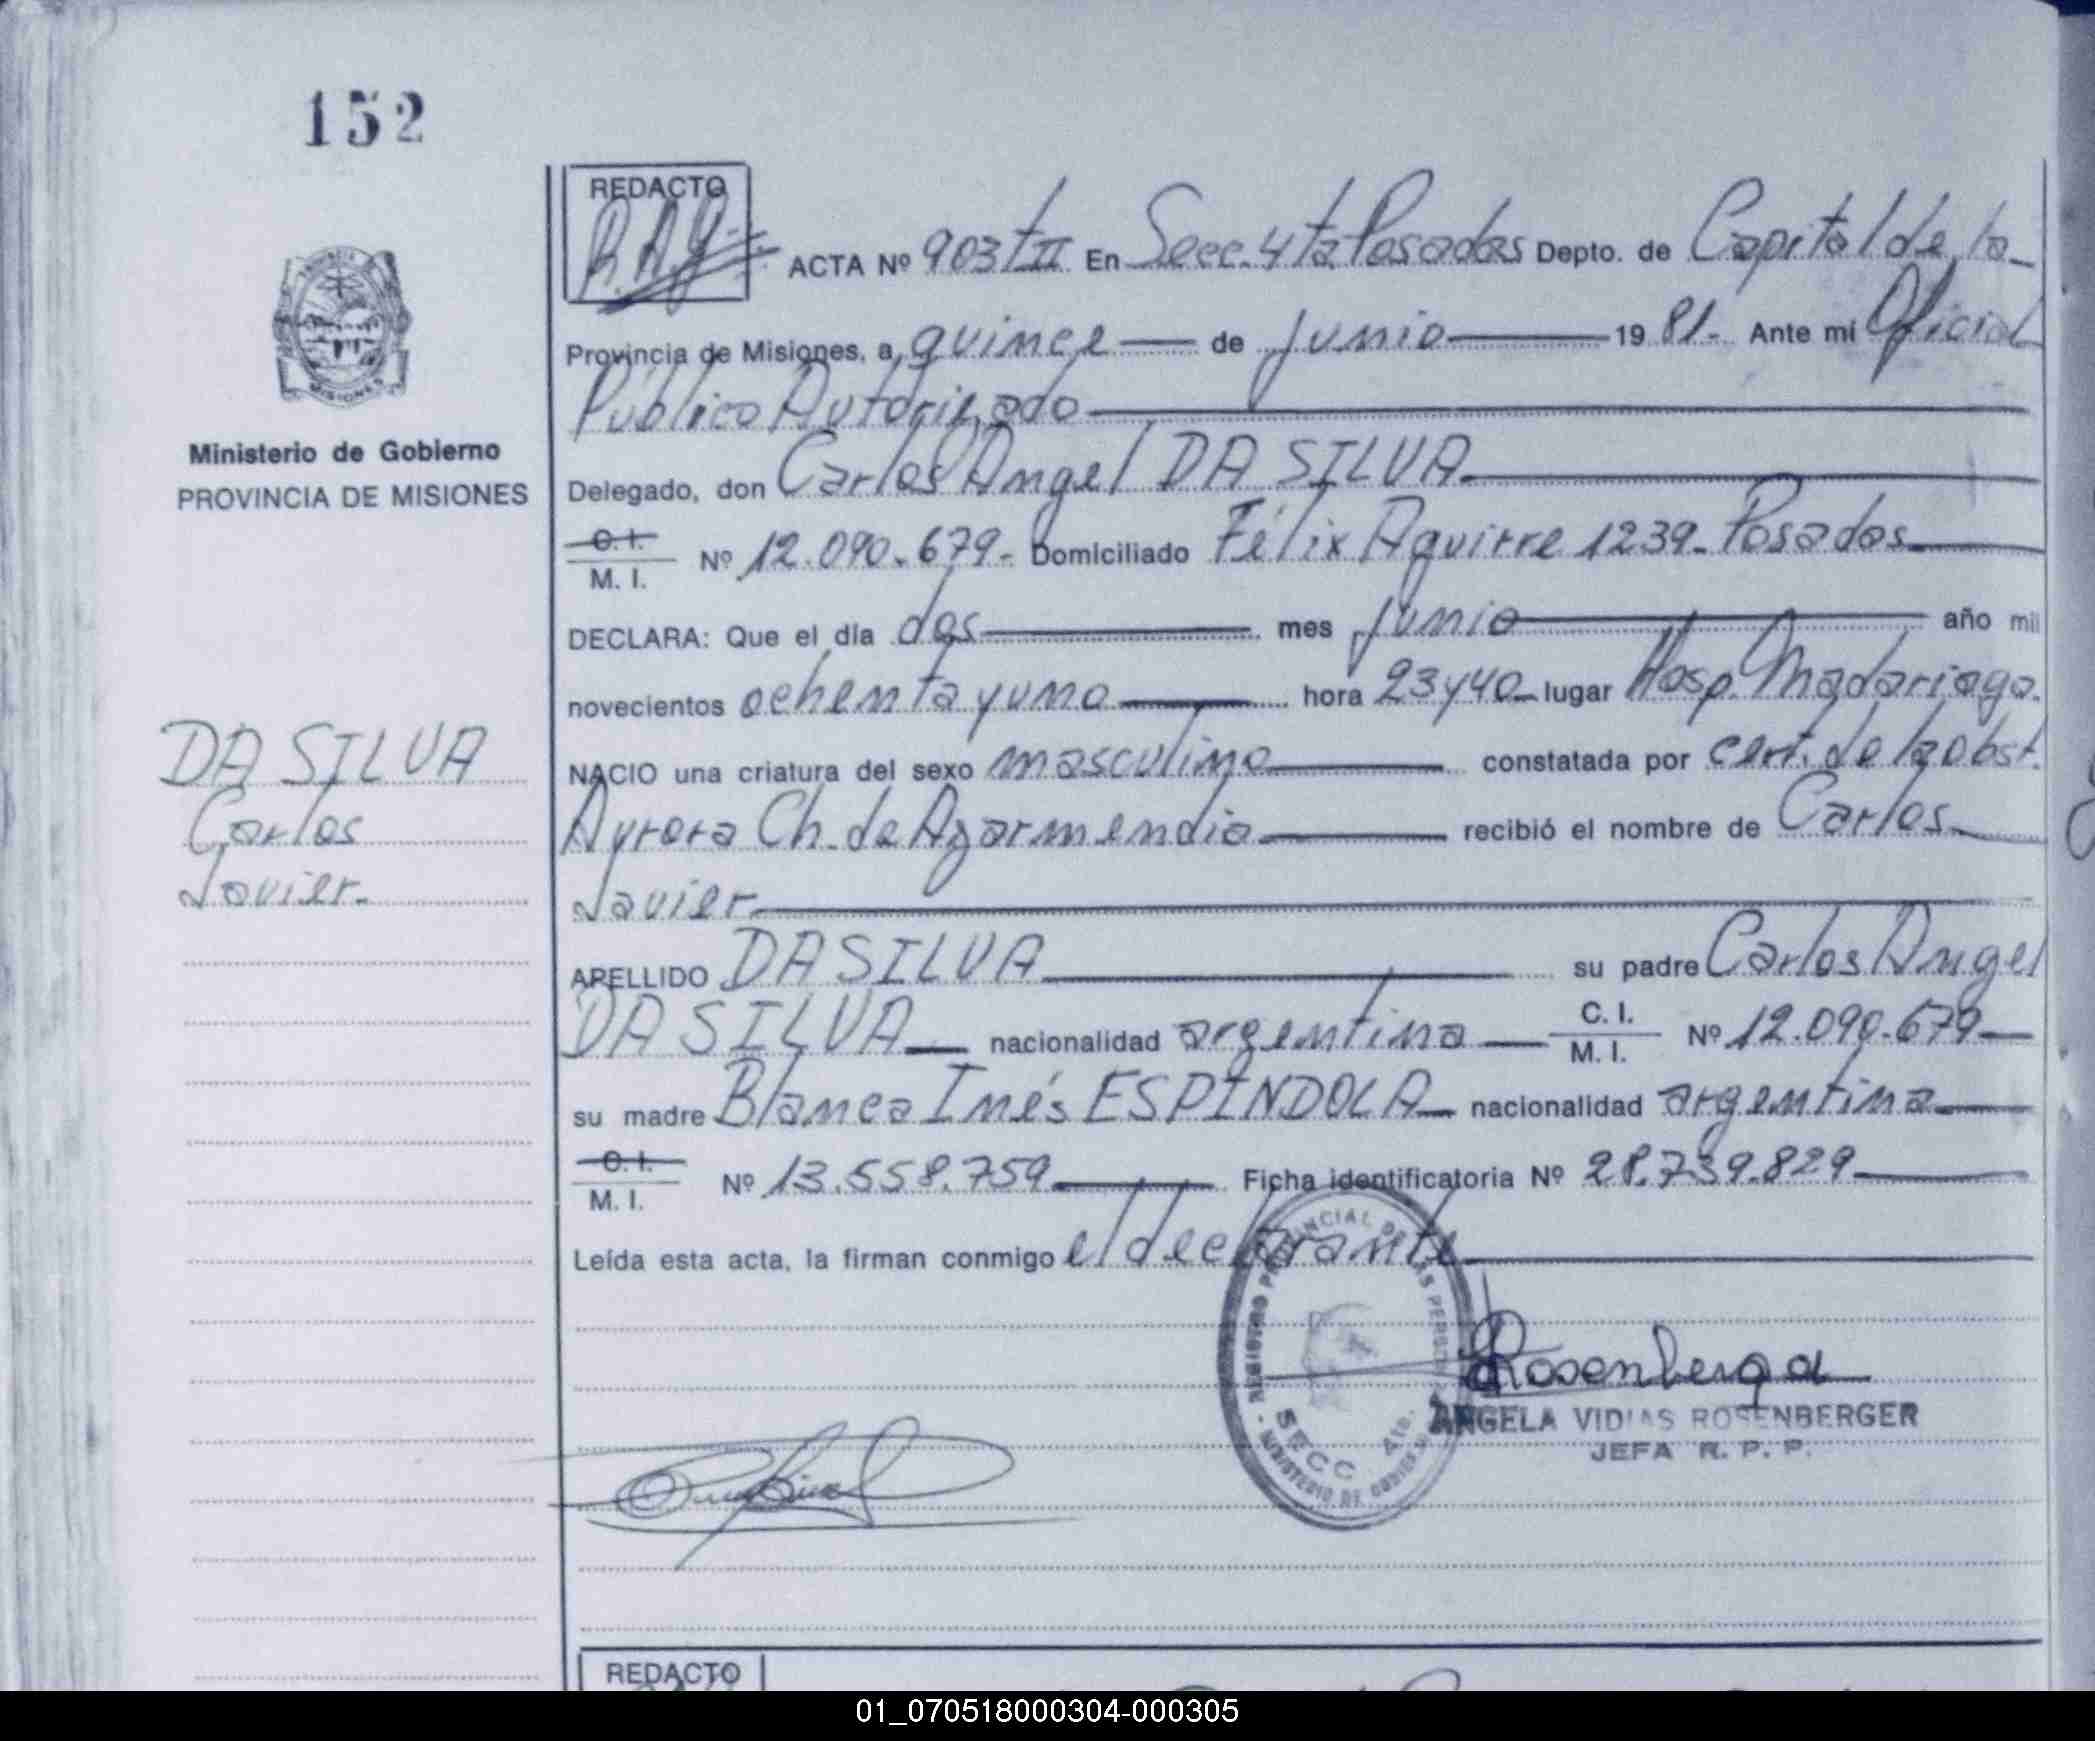 152
REDACTO
R.A.G.
ACTA Nº 903 t II En Secc. 4ta Posadas Depto. de Capital de la
Provincia de Misiones, a quince de junio 1981. Ante mí Oficial
Público Autorizado
Ministerio de Gobierno
PROVINCIA DE MISIONES
Delegado, don Carlos Angel DA SILVA
C. I.
M. I. Nº 12.090.679- Domiciliado Félix Aguirre 1239- Posadas
DECLARA: Que el día dos mes junio año mil
novecientos ochenta y uno hora 23 y 40 lugar Hosp. Madariaga.
DA SILVA
Carlos
Javier.
NACIO una criatura del sexo masculino constatada por cert. de la obst.
Aurora Ch. de Azarmendia recibió el nombre de Carlos
Javier
APELLIDO DA SILVA su padre Carlos Angel
DA SILVA nacionalidad argentina C. I. M. I. Nº 12.090.679
su madre Blanca Inés ESPINDOLA nacionalidad argentina
C. I.
M. I. Nº 13.558.759 Ficha identificatoria Nº 28.739.829
Leída esta acta, la firman conmigo el declarante
REGISTRO PROVINCIAL DE LAS PERSONAS
SECC. 4ta.
MINISTERIO DE GOBIERNO
Rosenberger
ANGELA VIDIAS ROSENBERGER
JEFA R. P. P.
REDACTO
01_070518000304-000305